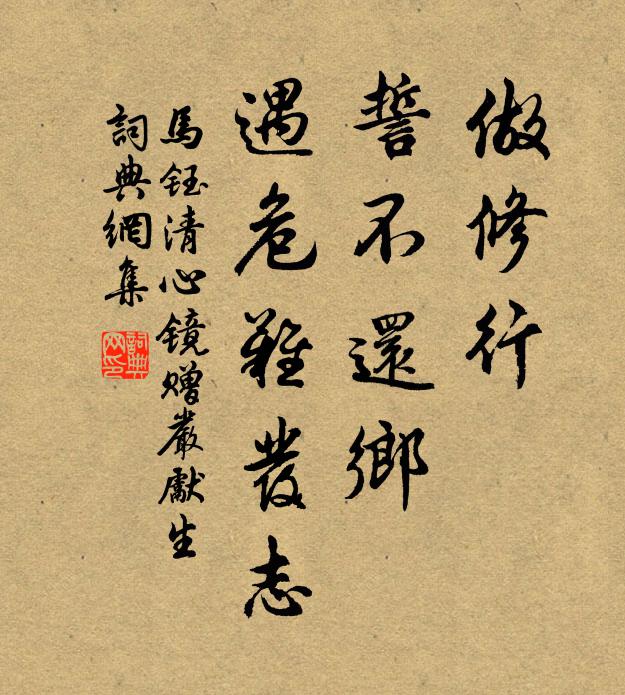 做修行
誓不還鄉
遇危難發志
馬鈺清心鏡贈嚴獻生
詞典網集
詞典網印